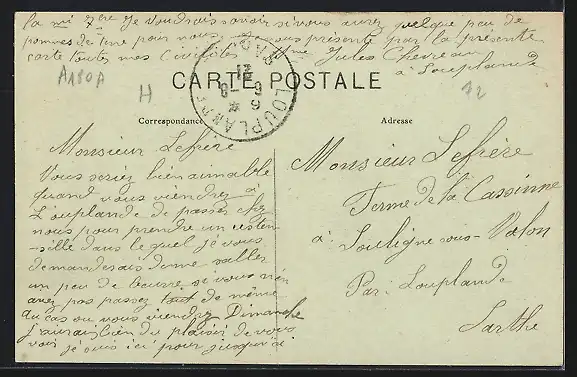 la mi 7bre Je voudrais savoir si vous aurez quelque peu de
pommes de terre pour nous. Je vous présente par la présente
carte toutes mes Civilités Mme Jules Chevreau
à Louplande
A180A
CARTE POSTALE
H
72
LOUPLANDE
Correspondance
Adresse
Monsieur Lefrère
Vous seriez bien aimable
quand vous viendrez à
Louplande de passer chez
nous pour prendre un usten-
-sille dans lequel je vous
demanderais de me saller
un peu de beurre, si vous n'en
avez pas passez tout de même
Au cas ou vous viendrez Dimanche
j'aurais bien du plaisir de vous
voir je suis ici pour jusqu'ici
Monsieur Lefrère
Ferme de la Cassinne
à Souligné sous Vallon
Par: Louplande
Sarthe